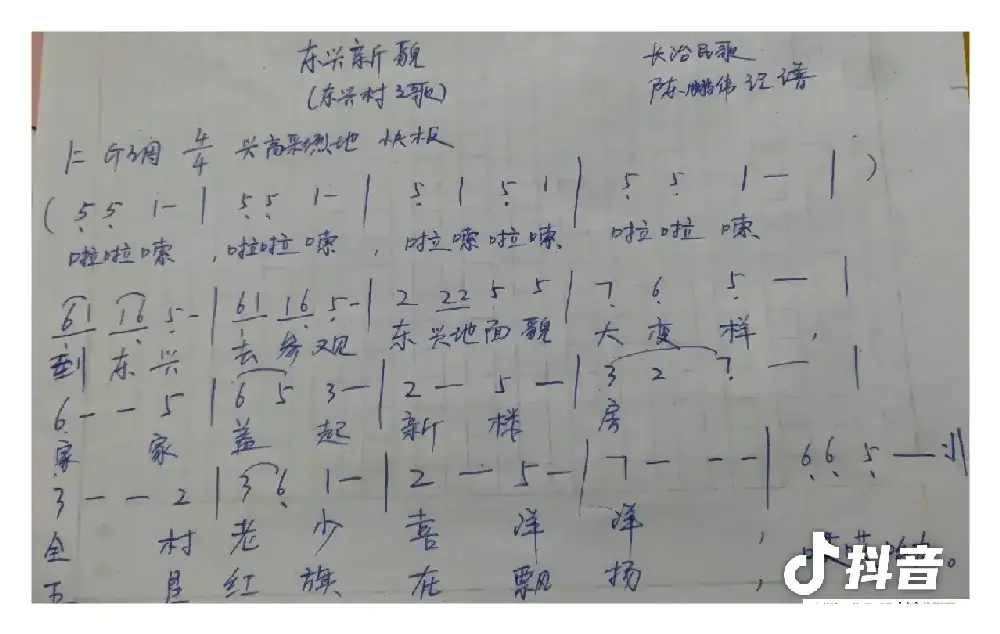 东兴新貌
长治民歌
(东兴村之歌)
陈鹏伟记谱
4/4 兴高采烈地 快板
( 5 5 1 - | 5 5 1 - | 5 1 5 1 | 5 5 1 - | )
啦啦嗦,啦啦嗦,啦嗦啦嗦 啦啦嗦
61 16 5 - | 61 16 5 - | 2 22 5 5 | 7 6 5 — |
到东兴 去参观 东兴地面貌 大变样,
6 - - 5 | 6 5 3 - | 2 - 5 - | 3 2 7 — |
家家 盖起 新楼 房
3 - - 2 | 3 6 1 - | 2 - 5 - | 7 - - - | 6 6 5 —
全村 老少 喜洋洋,
五星 红旗 在飘扬,
抖音